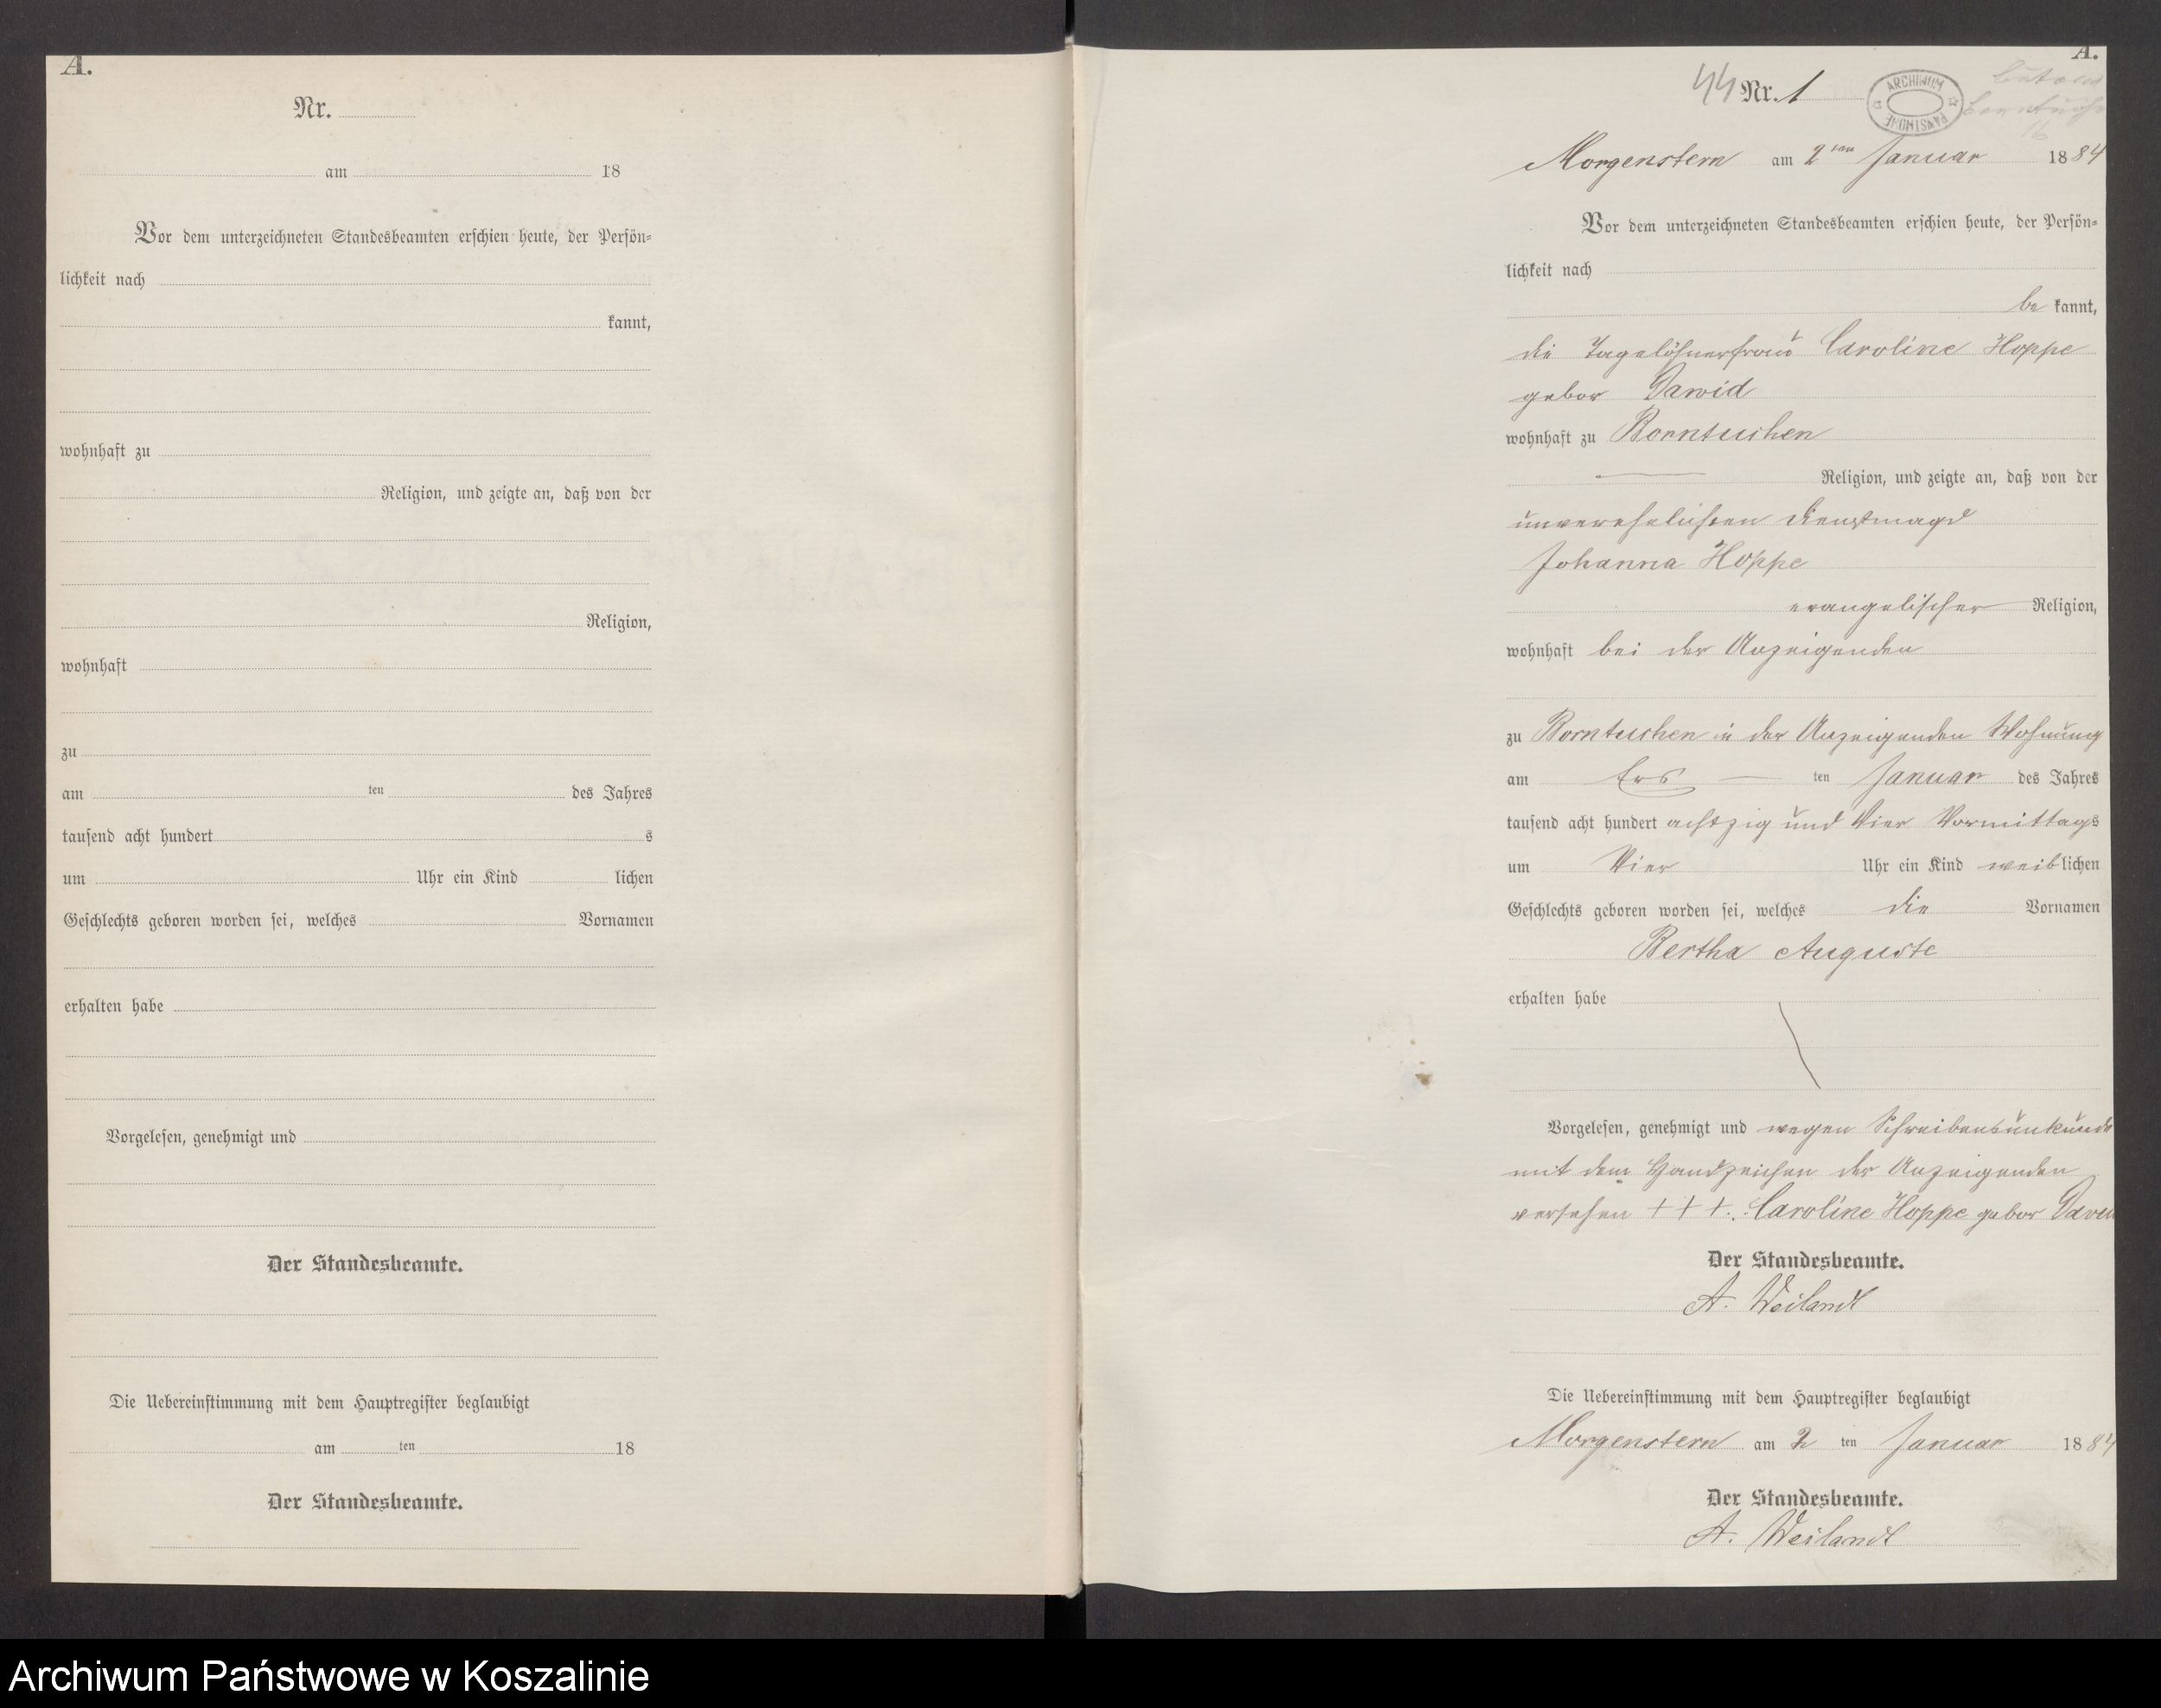 A.
Nr.
am 18
Vor dem unterzeichneten Standesbeamten erschien heute, der Persön-
lichkeit nach
kannt,
wohnhaft zu
Religion, und zeigte an, daß von der
Religion,
wohnhaft
zu
am ten des Jahres
tausend acht hundert s
um Uhr ein Kind lichen
Geschlechts geboren worden sei, welches Vornamen
erhalten habe
Vorgelesen, genehmigt und
Der Standesbeamte.
Die Uebereinstimmung mit dem Hauptregister beglaubigt
am ten 18
Der Standesbeamte.
A.
44 Nr. 1
ARCHIWUM PAŃSTWOWE
Morgenstern am 2ten Januar 1884
Vor dem unterzeichneten Standesbeamten erschien heute, der Persön-
lichkeit nach
be kannt,
die Tagelöhnerfrau Caroline Hoppe
gebor Dawid
wohnhaft zu Borntuchen
Religion, und zeigte an, daß von der
unverehelichten Dienstmagd
Johanna Hoppe
evangelischer Religion,
wohnhaft bei der Anzeigenden
zu Borntuchen in der Anzeigenden Wohnung
am Ers ten Januar des Jahres
tausend acht hundert achtzig und Vier Vormittags
um Vier Uhr ein Kind weiblichen
Geschlechts geboren worden sei, welches die Vornamen
Bertha Auguste
erhalten habe
Vorgelesen, genehmigt und wegen Schreibensunkunde
mit dem Handzeichen der Anzeigenden
versehen +++. Caroline Hoppe gebor
Der Standesbeamte.
A. Weilandt
Die Uebereinstimmung mit dem Hauptregister beglaubigt
Morgenstern am 2 ten Januar 1884
Der Standesbeamte.
A. Weilandt
Archiwum Państwowe w Koszalinie